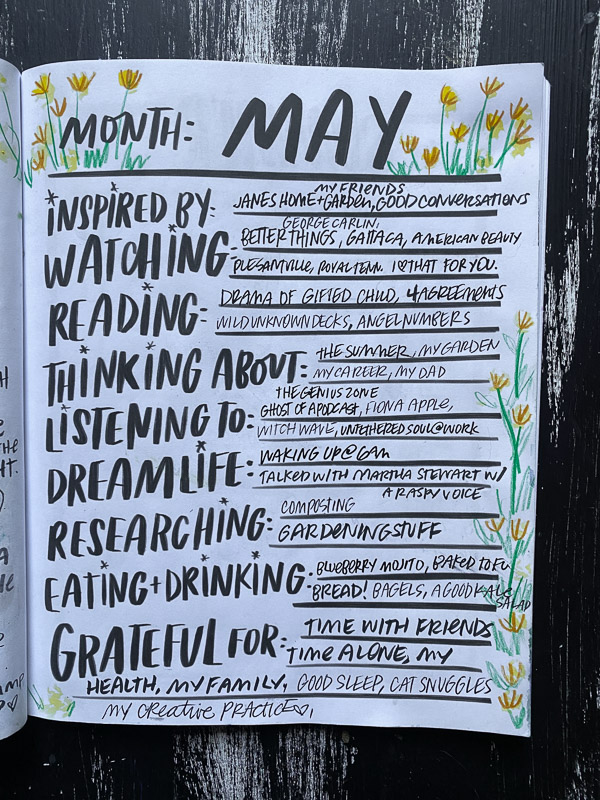 MONTH: MAY
MY FRIENDS
INSPIRED BY: JANES HOME + GARDEN, GOOD CONVERSATIONS
GEORGE CARLIN,
WATCHING: BETTER THINGS, GATTACA, AMERICAN BEAUTY
PLESANTVILLE, ROYAL TENN. I ♡ THAT FOR YOU.
READING: DRAMA OF GIFTED CHILD, 4 AGREEMENTS
WILD UNKNOWN DECKS, ANGEL NUMBERS
THINKING ABOUT: THE SUMMER, MY GARDEN
MY CAREER, MY DAD
THE GENIUS ZONE
LISTENING TO: GHOST OF A PODCAST, FIONA APPLE,
WITCH WAVE, UNTETHERED SOUL @ WORK
DREAM LIFE: WAKING UP @ 6AM
TALKED WITH MARTHA STEWART W/
A RASPY VOICE
RESEARCHING: COMPOSTING
GARDENING STUFF
EATING + DRINKING: BLUEBERRY MOJITO, BAKED TOFU
BREAD! BAGELS, A GOOD KALE
SALAD
GRATEFUL FOR: TIME WITH FRIENDS
TIME ALONE, MY
HEALTH, MY FAMILY, GOOD SLEEP, CAT SNUGGLES
MY CREATIVE PRACTICE♡,
THE
HT.